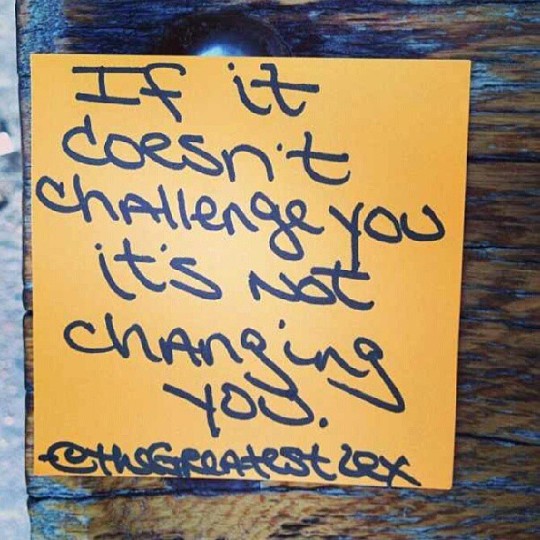 If it
doesn't
challenge you
it's not
changing
you.
@theGreatestlex